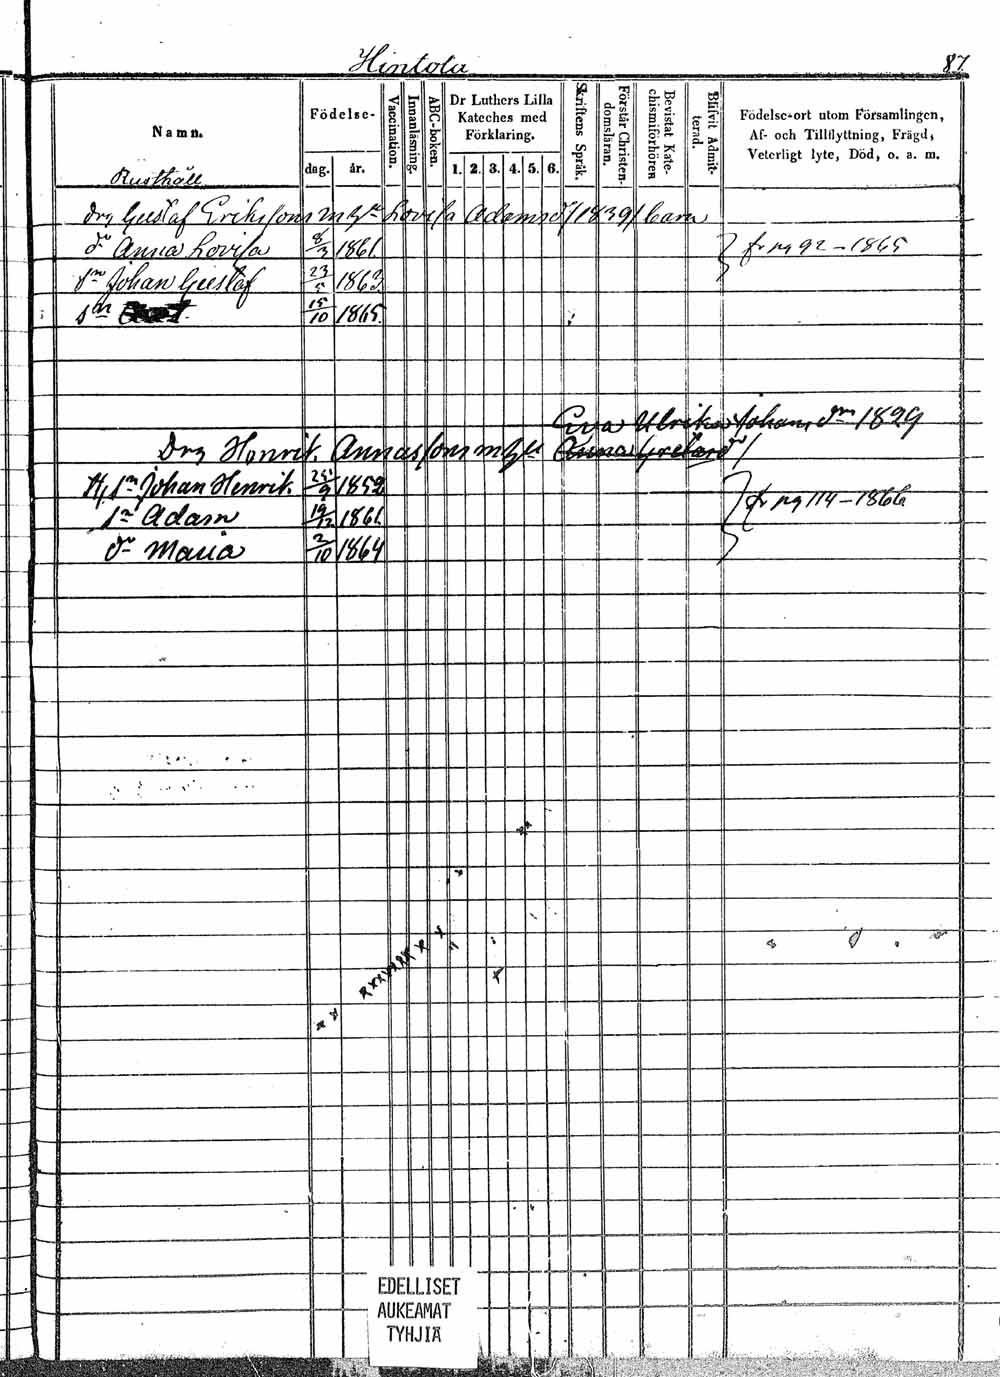 Hintola 87.
Namn. Födelse- Vaccination. Innanläsning. ABC-boken. Dr Luthers Lilla Kateches med Förklaring. Skriftens Språk. Förstår Christendomsläran. Bevistat Katechismiförhören Blifvit Admitterad. Födelse-ort utom Församlingen, Af- och Tillflyttning, Frägd, Veterligt lyte, Död, o. a. m.
Rusthåll dag. år. 1. 2. 3. 4. 5. 6.
Drg Gustaf Erikssons m hu Lovisa Adamsd /1839/ barn
dr Anna Lovisa 8/3 1861. fr pg 92 – 1865
sn Johan Gustaf 23/5 1863.
sn 15/10 1865.
Eva Ulrika Johans dr 1829
Drg Henrik Annassons m hu Anna Gretas d /
sn Johan Henrik. 25/9 1852 fr pg 114 – 1866
sn Adam 19/12 1861.
dr Maria 2/10 1864
EDELLISET
AUKEAMAT
TYHJIÄ